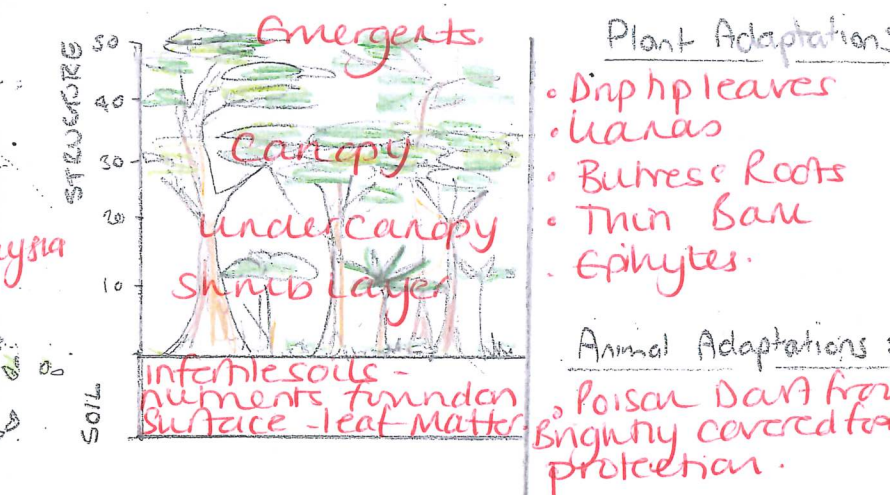 STRUCTURE
50
40
30
20
10
Emergents.
Canopy
Under Canopy
Shrub Layer
SOIL
infertile soils -
nutrients found on
surface - leaf Matter.
ysia
Plant Adaptations
• Drip tip leaves
• Lianas
• Buttress Roots
• Thin Bark
• Epihytes.
Animal Adaptations :
• Poison Dart fro
Brightly covered for
protection.